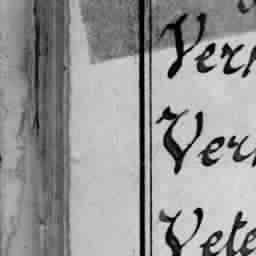 Ver
Ver
Vete